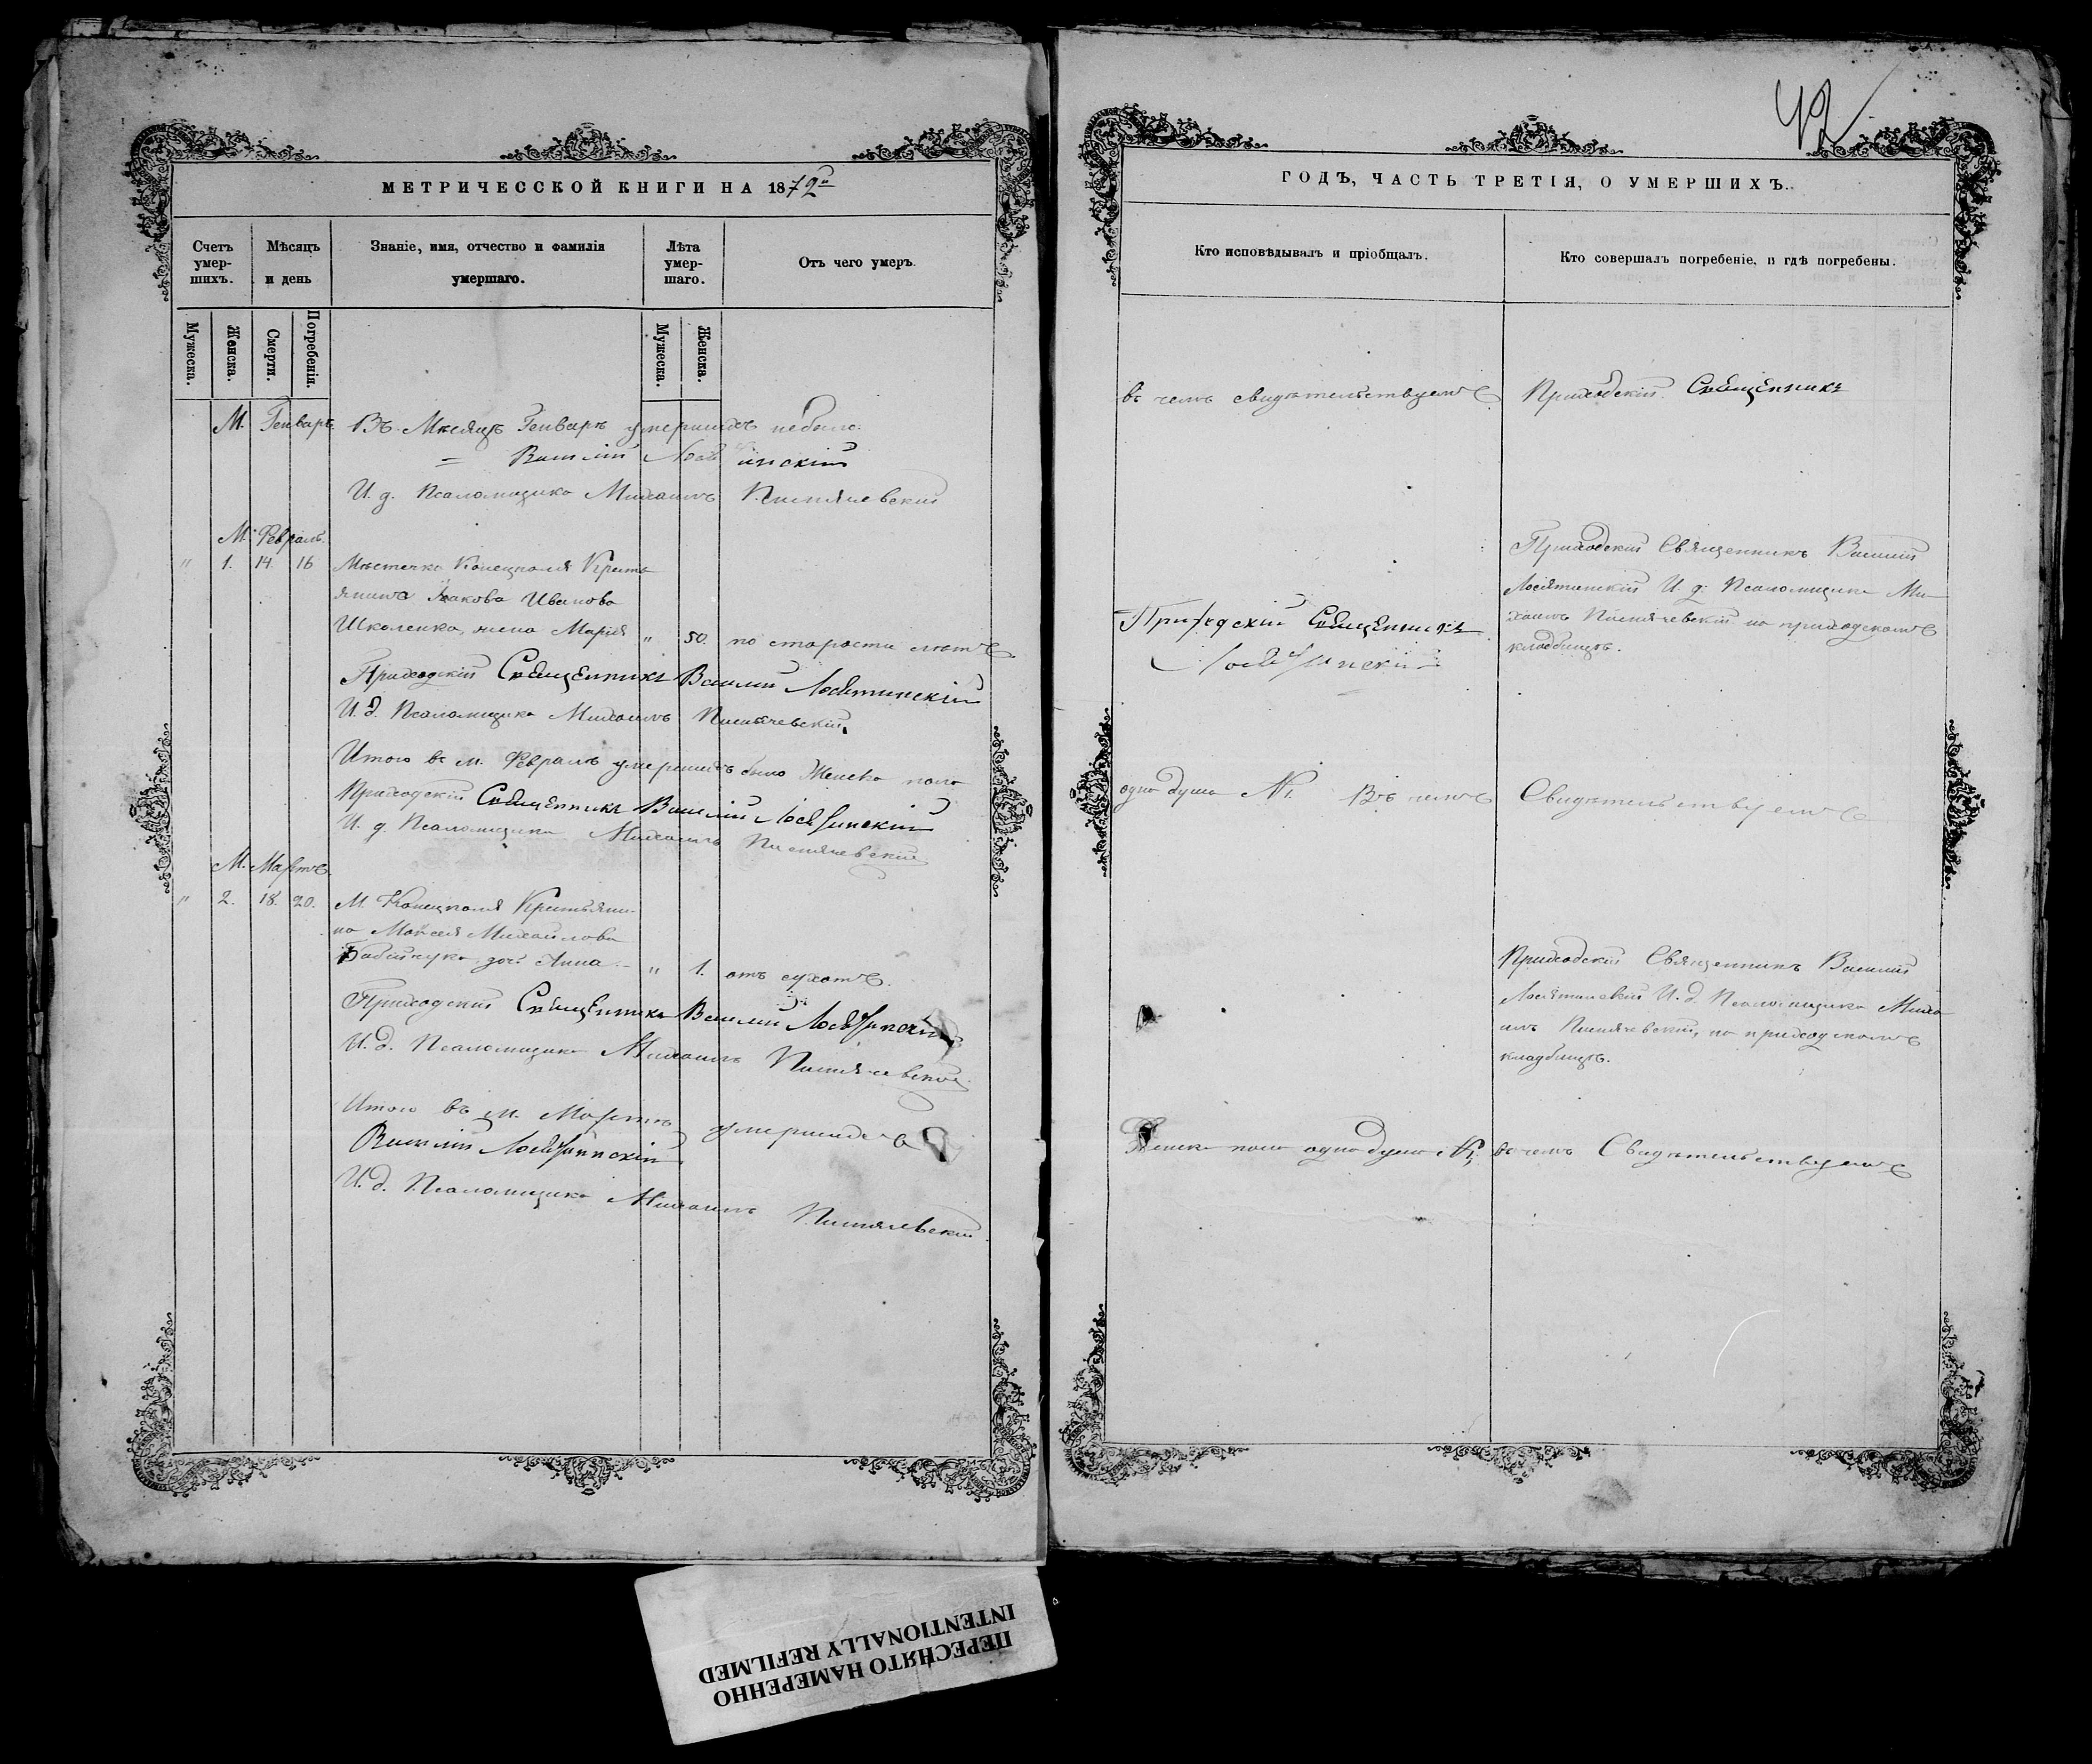 МЕТРИЧЕССКОЙ КНИГИ НА 1872й
Счетъ умер-шихъ.
Мѣсяцъ и день
Знаніе, имя, отчество и фамилія умершаго.
Лѣта умер-шаго.
Отъ чего умеръ.
Мужеска.
Женска.
Смерти.
Погребенія.
Мужеска.
Женска.
М. Генварь. Въ Мѣсяцѣ Генварѣ умершихъ небыло.
Василій
И. д. Псаломщика Михаилъ
М. Февраль.
" 1. 14. 16 Мѣстечка Конецполя Кресть-
янина Іакова Иванова
Школенка, жена Марія " 50. по старости лѣтъ
Приходскій Священникъ Василій Лосятинскій
И. д. Псаломщика Михаилъ
Итого въ м. Февралѣ умершихъ было Женска пола
Приходскій Священникъ Василій Лосятинскій
И. д. Псаломщика Михаилъ
М. Мартъ
" 2. 18. 20. М. Конецполя Крестьяни-
на Моисея Михайлова
дочь Анна " 1. отъ сухотъ.
Приходскій Священникъ Василій Лосятинскій
И. д. Псаломщика Михаилъ
Итого въ м. Мартѣ умершихъ
Василій Лосятинскій
И. д. Псаломщика Михаилъ
42
ГОДЪ, ЧАСТЬ ТРЕТІЯ, О УМЕРШИХЪ.
Кто исповѣдывалъ и пріобщалъ.
Кто совершалъ погребеніе, и гдѣ погребены.
въ чемъ свидѣтельствуемъ Приходскій Священникъ
Приходскій Священникъ
Лосятинскій
Приходскій Священникъ Василій
Лосятинскій И. д. Псаломщика Ми-
хаилъ на приходскомъ
кладбищѣ.
одна душа №1. Въ чемъ Свидѣтельствуемъ
Приходскій Священникъ Василій
Лосятинскій И. д. Псаломщика Миха-
илъ на приходскомъ
кладбищѣ.
Женска пола одна душа №1, въ чемъ Свидѣтельствуемъ
ПЕРЕСНЯТО НАМЕРЕННО
INTENTIONALLY REFILMED